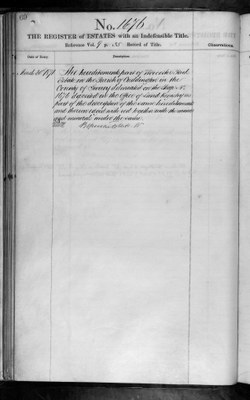 No. 1676
THE REGISTER of ESTATES with an Indefeasible Title.
Reference Vol. 9 p. Record of Title.
Date of Entry.
Description
Observations.
March 1876
The hereditaments part of
Estate in the Parish of Cuddington in the
County of Surrey delineated on the Map No.
1676 deposited in the Office of Land Registry as
part of the description of the same hereditaments
and thereon edged with red together with the mines
and minerals under the same